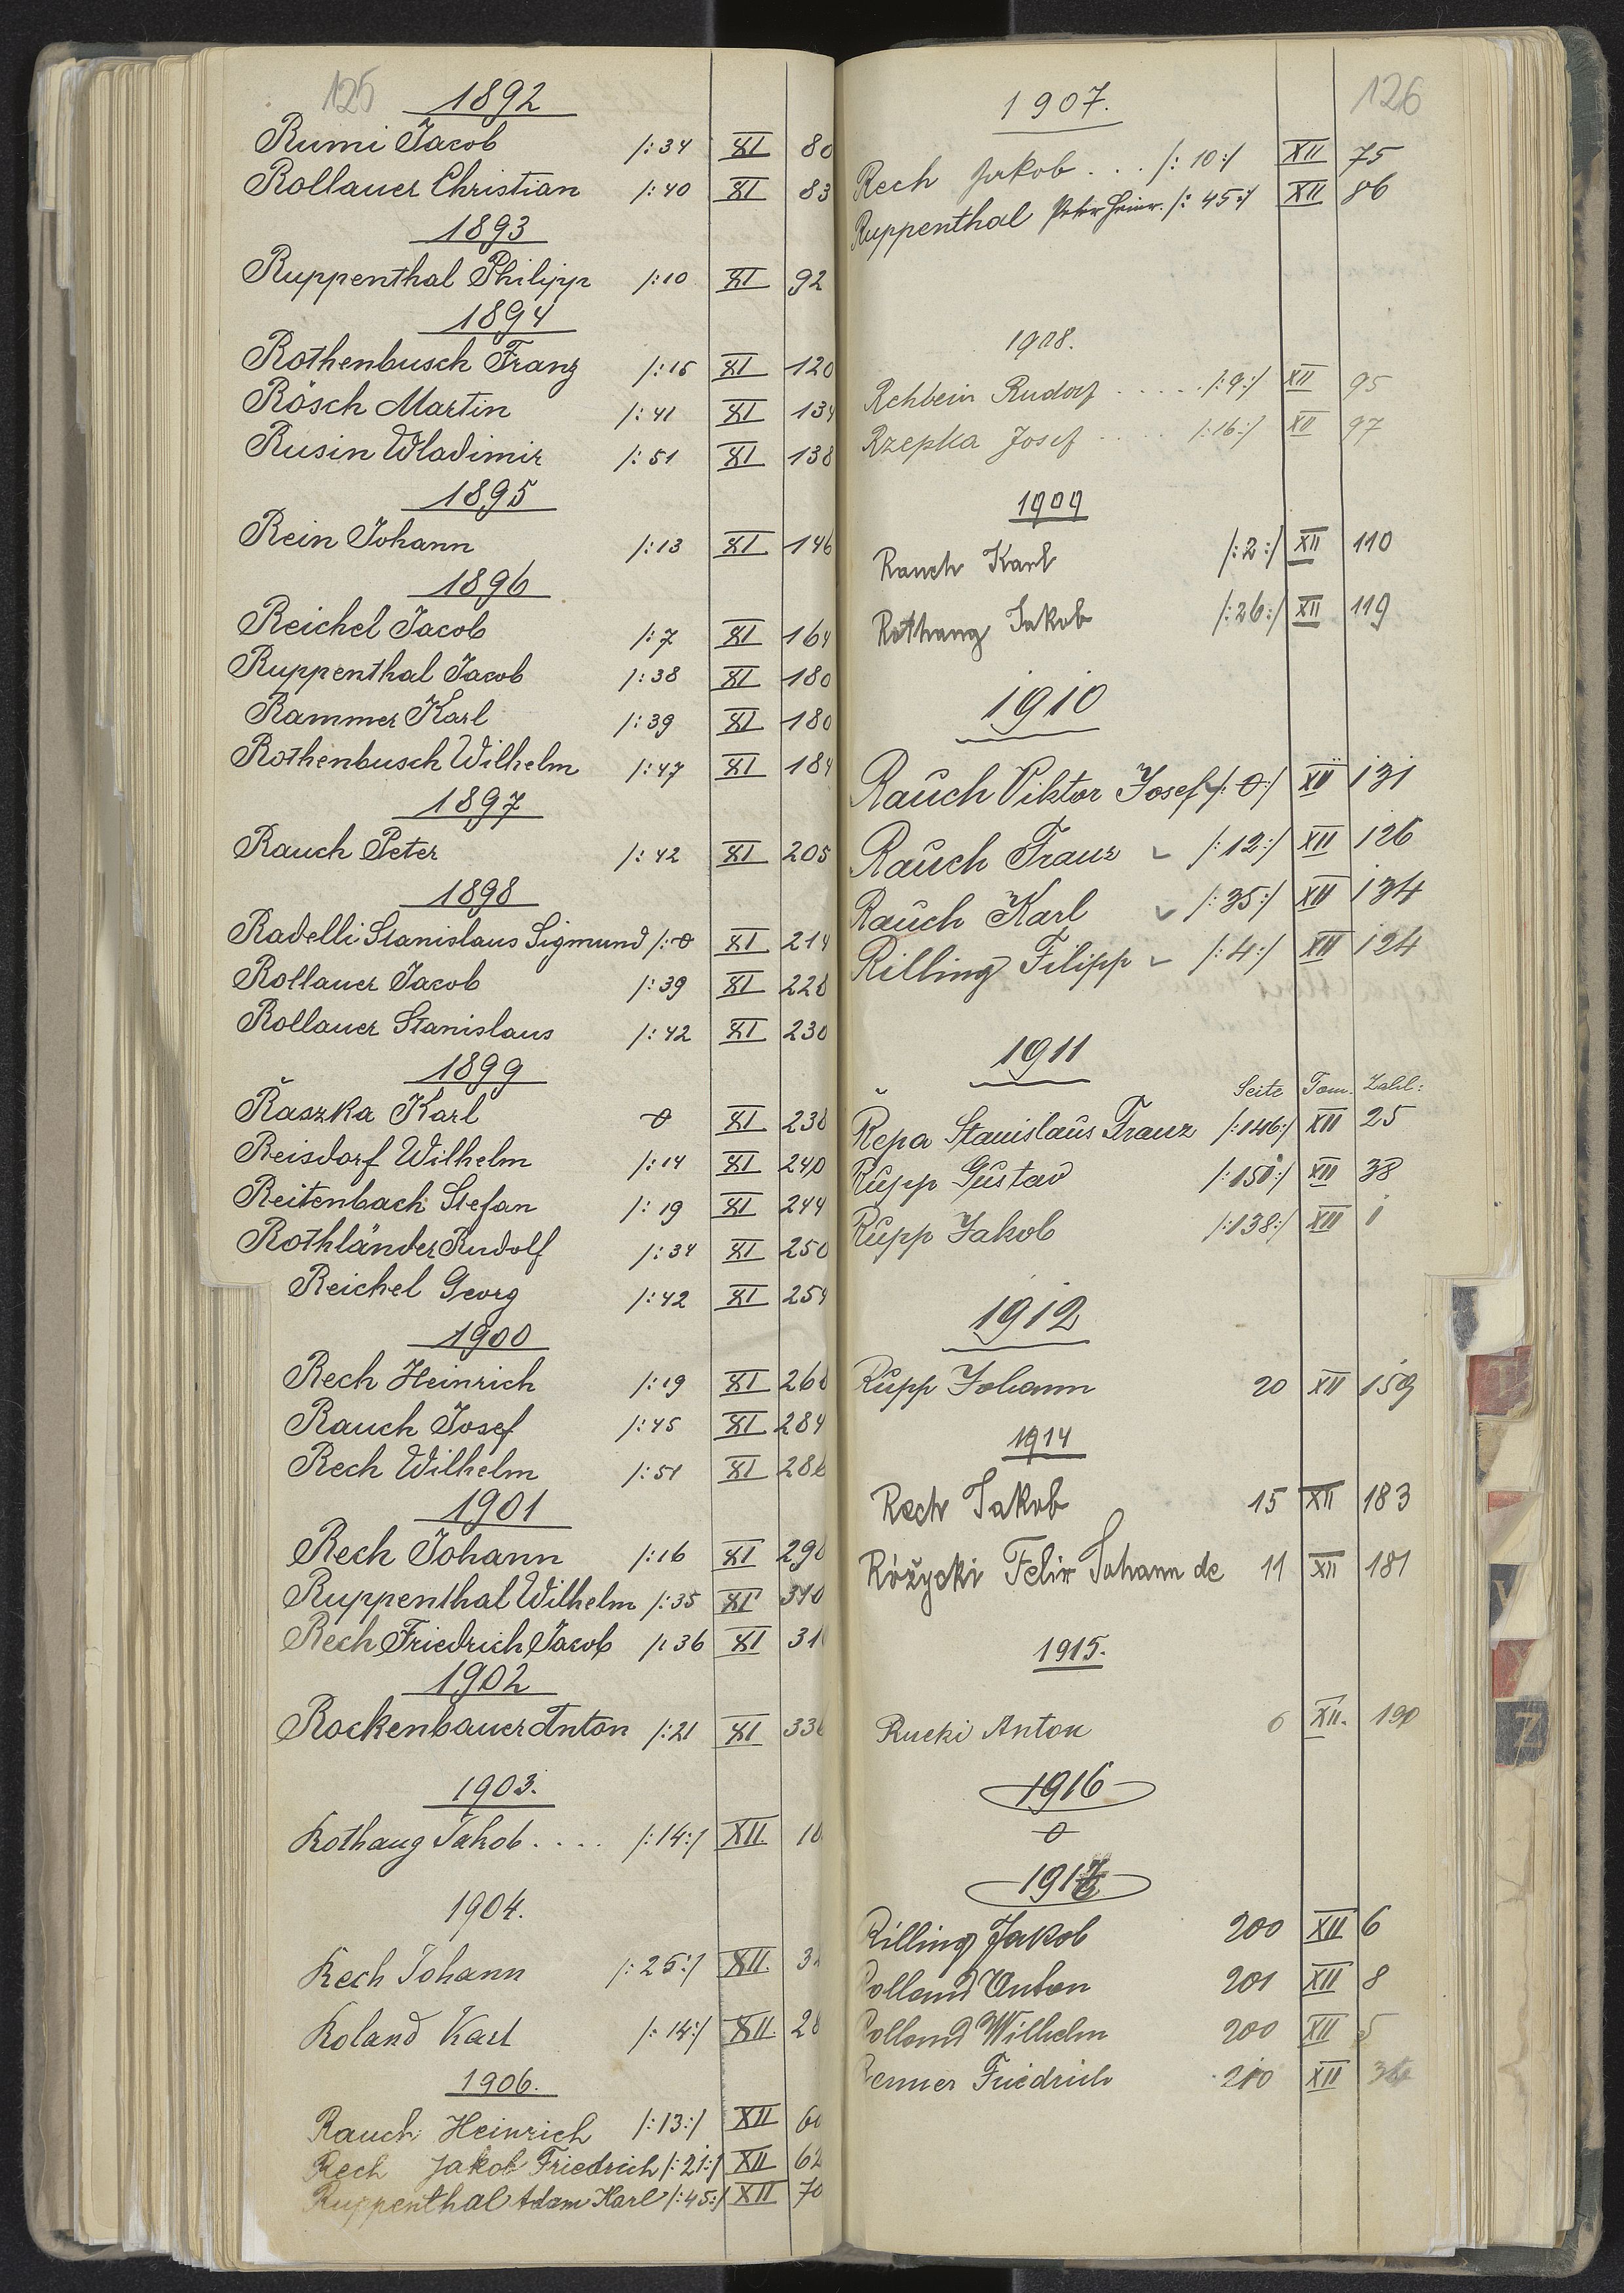 125
1892
Rumi Jacob /:34 XI 80
Rollauer Christian /:40 XI 83
1893
Ruppenthal Philipp /:10 XI 92
1894
Rothenbusch Franz /:15 XI 120
Rösch Martin /:41 XI 134
Rusin Wladimir /:51 XI 138
1895
Rein Johann /:13 XI 146
1896
Reichel Jacob /:7 XI 164
Ruppenthal Jacob /:38 XI 180
Rammer Karl /:39 XI 180
Rothenbusch Wilhelm /:47 XI 184
1897
Rauch Peter /:42 XI 205
1898
Radelli Stanislaus Sigmund /:0 XI 214
Rollauer Jacob /:39 XI 228
Rollauer Stanislaus /:42 XI 230
1899
Řaszka Karl 0 XI 238
Reisdorf Wilhelm /:14 XI 240
Reitenbach Stefan /:19 XI 244
Rothländer Rudolf /:34 XI 250
Reichel Georg /:42 XI 254
1900
Rech Heinrich /:19 XI 268
Rauch Josef /:45 XI 284
Rech Wilhelm /:51 XI 286
1901
Rech Johann /:16 XI 298
Ruppenthal Wilhelm /:35 XI 310
Rech Friedrich Jacob /:36 XI 31
1902
Rockenbauer Anton /:21 XI 336
1903.
Rothaug Jakob . . . . /:14:/ XII. 10
1904.
Rech Johann /:25:/ XII. 3
Roland Karl /:14:/ XII. 28
1906.
Rauch Heinrich /:13:/ XII 60
Rech Jakob Friedrich /:21:/ XII 62
Ruppenthal Adam Karl /:45:/ XII 70
126
1907.
Rech Jakob . . . /:10:/ XII 75
Ruppenthal Peter Heinr. /:45:/ XII 86
1908.
Rehbein Rudolf . . . . . /:9:/ XII 95
Rzepka Josef . . . . . /:16:/ XII 97
1909
Rauch Karl /:2:/ XII 110
Rothaug Jakob /:26:/ XII 119
1910
Rauch Viktor Josef /:0:/ XII 131
Rauch Franz /:12:/ XII 126
Rauch Karl /:35:/ XII 134
Rilling Filipp /:4:/ XII 124
1911
Seite Tom. Zahl:
Řepa Stanislaus Franz /:146:/ XII 25
Rupp Gustav /:150:/ XII 38
Rupp Jakob /:138:/ XII 1
1912
Rupp Johann 20 XII 159
1914
Rech Jakob 15 XII 183
Różycki Felix Johann de 11 XII 181
1915.
Rucki Anton 6 XII. 190
1916
0
1917
Rilling Jakob 200 XII 6
Rolland Anton 201 XII 8
Rolland Wilhelm 200 XII 5
Renner Friedrich 210 XII
Z